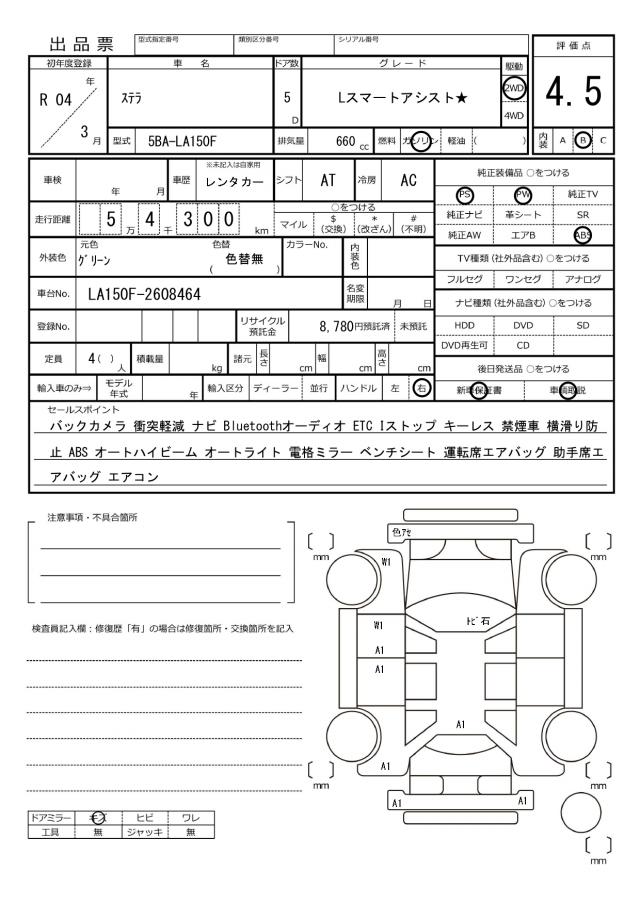 出品票
型式指定番号 類別区分番号 シリアル番号
初年度登録 車名 ドア数 グレード 駆動 評価点
R 04 年 3 月 ステラ 5 D Lスマートアシスト★ 2WD 4WD 4.5
型式 5BA-LA150F 排気量 660 cc 燃料 ガソリン 軽油 ( ) 内装 A B C
車検 年 月 車歴 ※未記入は自家用 レンタカー シフト AT 冷房 AC
走行距離 5 万 4 千 3 0 0 km ○をつける マイル $ (交換) * (改ざん) # (不明)
外装色 元色 グリーン 色替 ( 色替無 ) カラーNo. 内装色
車台No. LA150F-2608464 名変期限 月 日
登録No. リサイクル預託金 8,780円預託済 未預託
定員 4( ) 人 積載量 kg 諸元 長さ cm 幅 cm 高さ cm
輸入車のみ⇒ モデル年式 年 輸入区分 ディーラー 並行 ハンドル 左 右
純正装備品 ○をつける
PS PW 純正TV
純正ナビ 革シート SR
純正AW エアB ABS
TV種類(社外品含む) ○をつける
フルセグ ワンセグ アナログ
ナビ種類(社外品含む) ○をつける
HDD DVD SD
DVD再生可 CD
後日発送品 ○をつける
新車保証書 車輌取説
セールスポイント
バックカメラ 衝突軽減 ナビ Bluetoothオーディオ ETC Iストップ キーレス 禁煙車 横滑り防
止 ABS オートハイビーム オートライト 電格ミラー ベンチシート 運転席エアバッグ 助手席エ
アバッグ エアコン
注意事項・不具合箇所
検査員記入欄:修復歴「有」の場合は修復箇所・交換箇所を記入
ドアミラー キズ ヒビ ワレ
工具 無 ジャッキ 無
色アセ
[ ] mm
[ ] mm
W1
W1
トビ石
A1
A1
A1
A1
[ ] mm
[ ] mm
A1 A1
[ ] mm